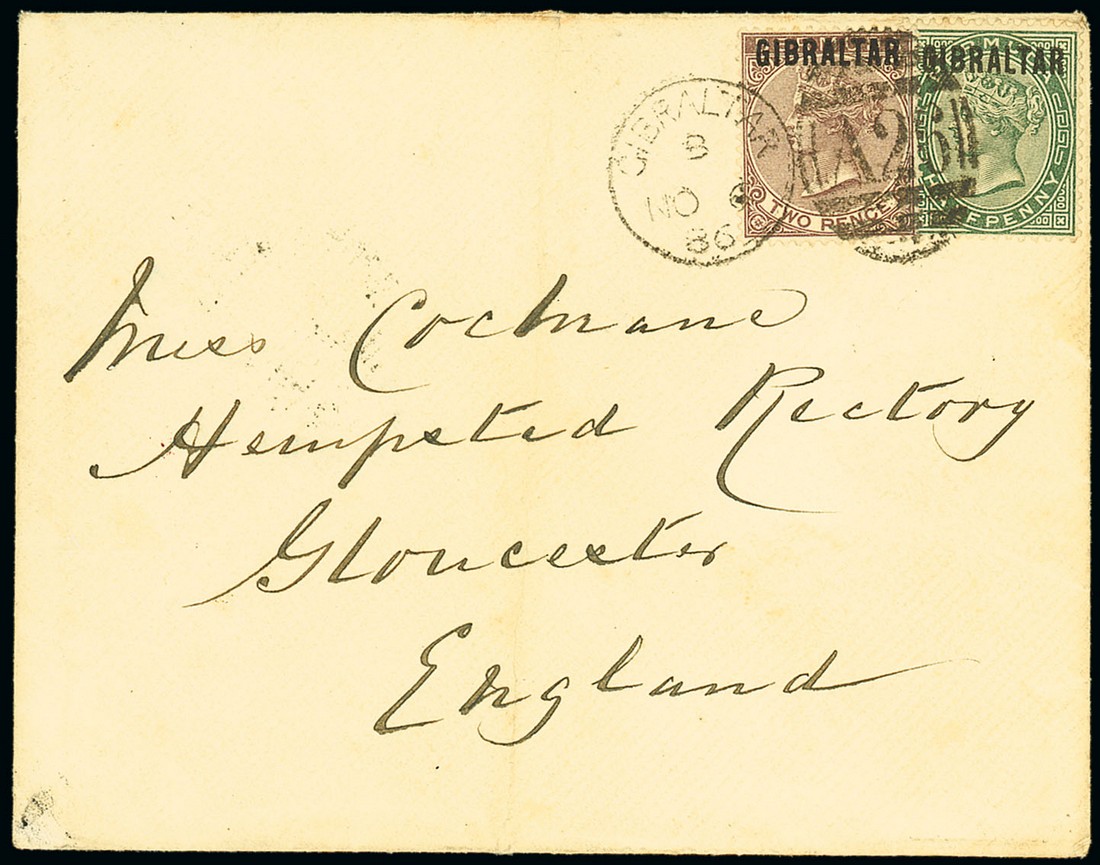 GIBRALTAR
GIBRALTAR
TWO PENCE
HALFPENNY
GIBRALTAR
B
NO
86
A26
Miss Cochrane
Hempsted Rectory
Gloucester
England